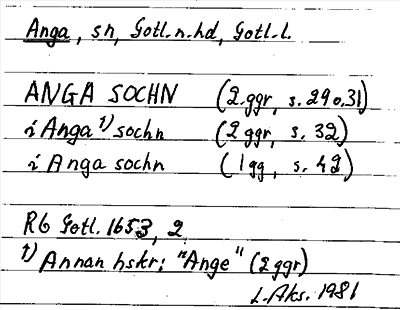 Anga, sn, Gotl. n. hd, Gotl. l.
ANGA SOCHN (2 ggr, s. 29 o. 31)
i Anga 1) sochn (2 ggr, s. 32)
i Anga sochn (1 gg, s. 42)
RG Gotl. 1653, 2
1) Annan hskr: "Ange" (2 ggr)
L. Aks. 1981